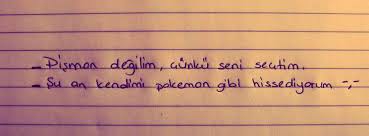 - Pişman değilim, çünkü seni seçtim.
- Şu an kendimi pokemon gibi hissediyorum -,-